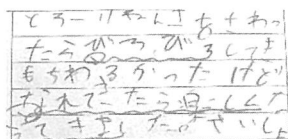 とろーけねんさをさわっ
たらびろびろしてき
もちわるかったけど
なれてきたら口にしくな
ってきました。さいしょ